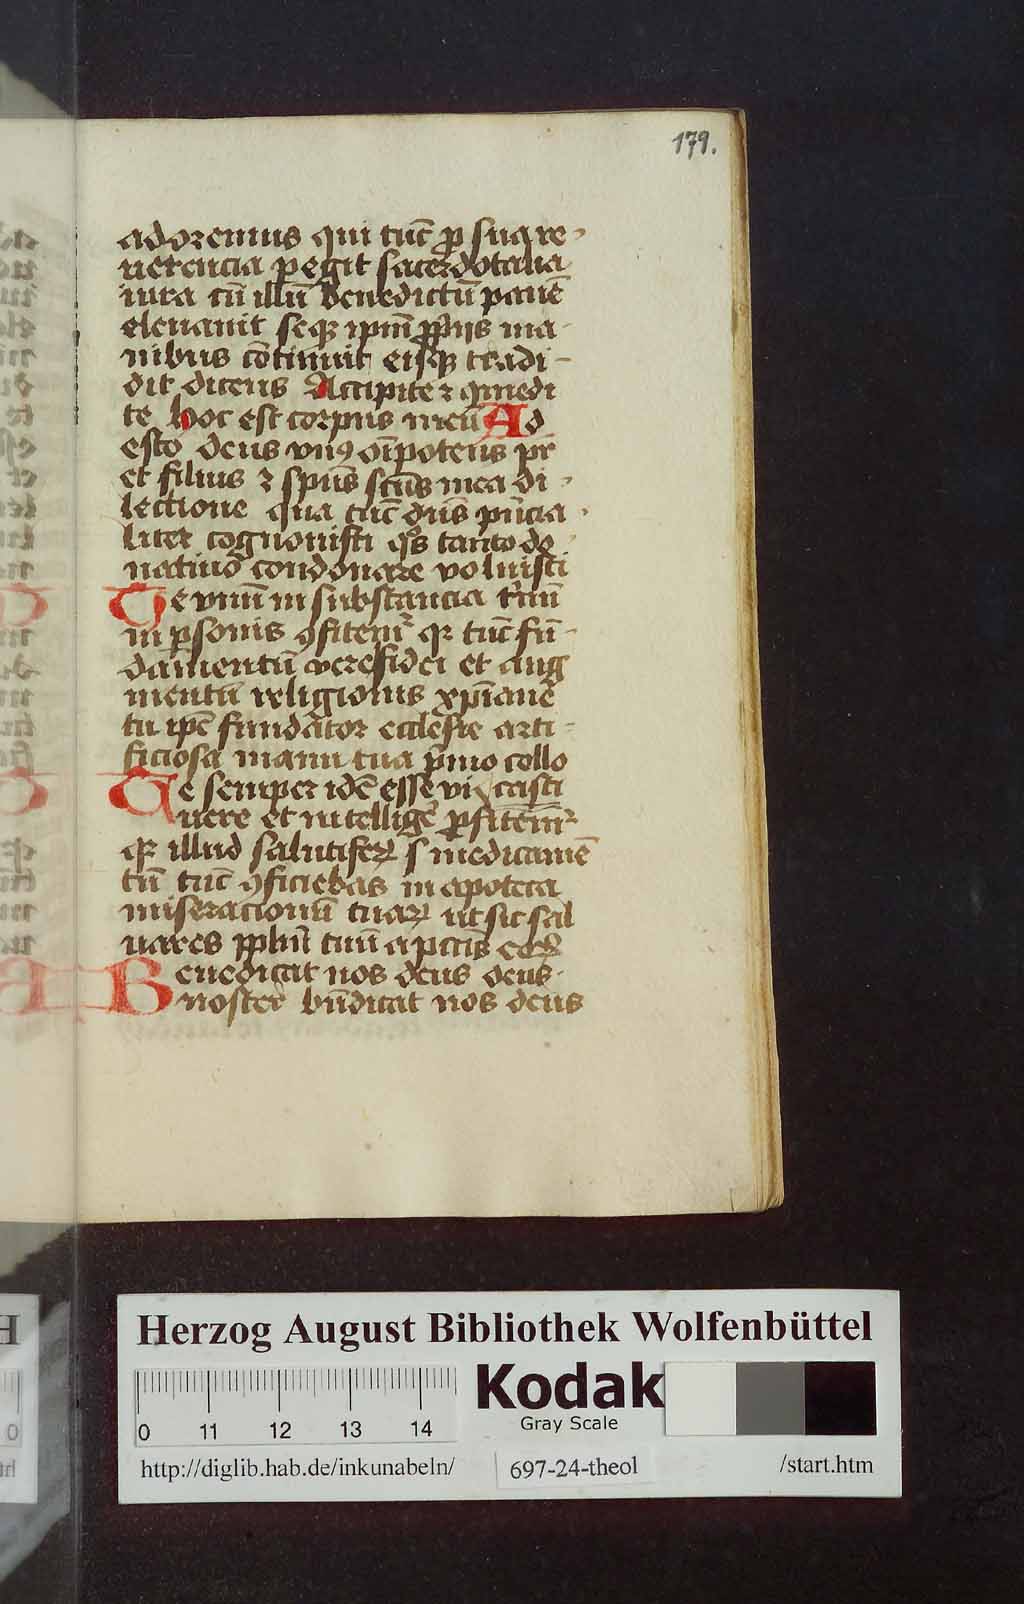 179.
adoremus qui tūc ꝓ sua re-
uerencia pegit sacerdotalia
iura cū illū benedictū panē
eleuauit seqꝫ ipm̄ ꝓprijs ma-
nibus cōtinuit eisqꝫ tradi-
dit dicens Accipite ⁊ ꝯmedi
te hoc est corpus meū Ad
esto deus vnꝰ oīpotens pr̄
et filius ⁊ spūs sctūs mea di-
lectione qua tūc dn̄s
liter cognouisti tanto do-
natiuo condonare voluisti
Te vnum in substancia t'nū
in ꝑsonis ꝯfitemr̄ qꝛ tūc fū-
damentū vere fidei et aug
mentū religionis xp̄iane
tu ipē fundator ecclesie arti-
ficiosa manu tua collo
Te semper idē esse vi casti
uere et intelligē̉ ꝓfitemr̄
qꝛ illud salutiferꝝ medicamē
tū tūc ꝯficiebas in apoteca
miseracionū tuaꝝ ut sic sal
uares pplm̄ tuū a pctis eoꝝ
Benedicat nos deus deus
noster bn̄dicat nos deus
Herzog August Bibliothek Wolfenbüttel
0 11 12 13 14
Kodak
Gray Scale
http://diglib.hab.de/inkunabeln/ 697-24-theol /start.htm